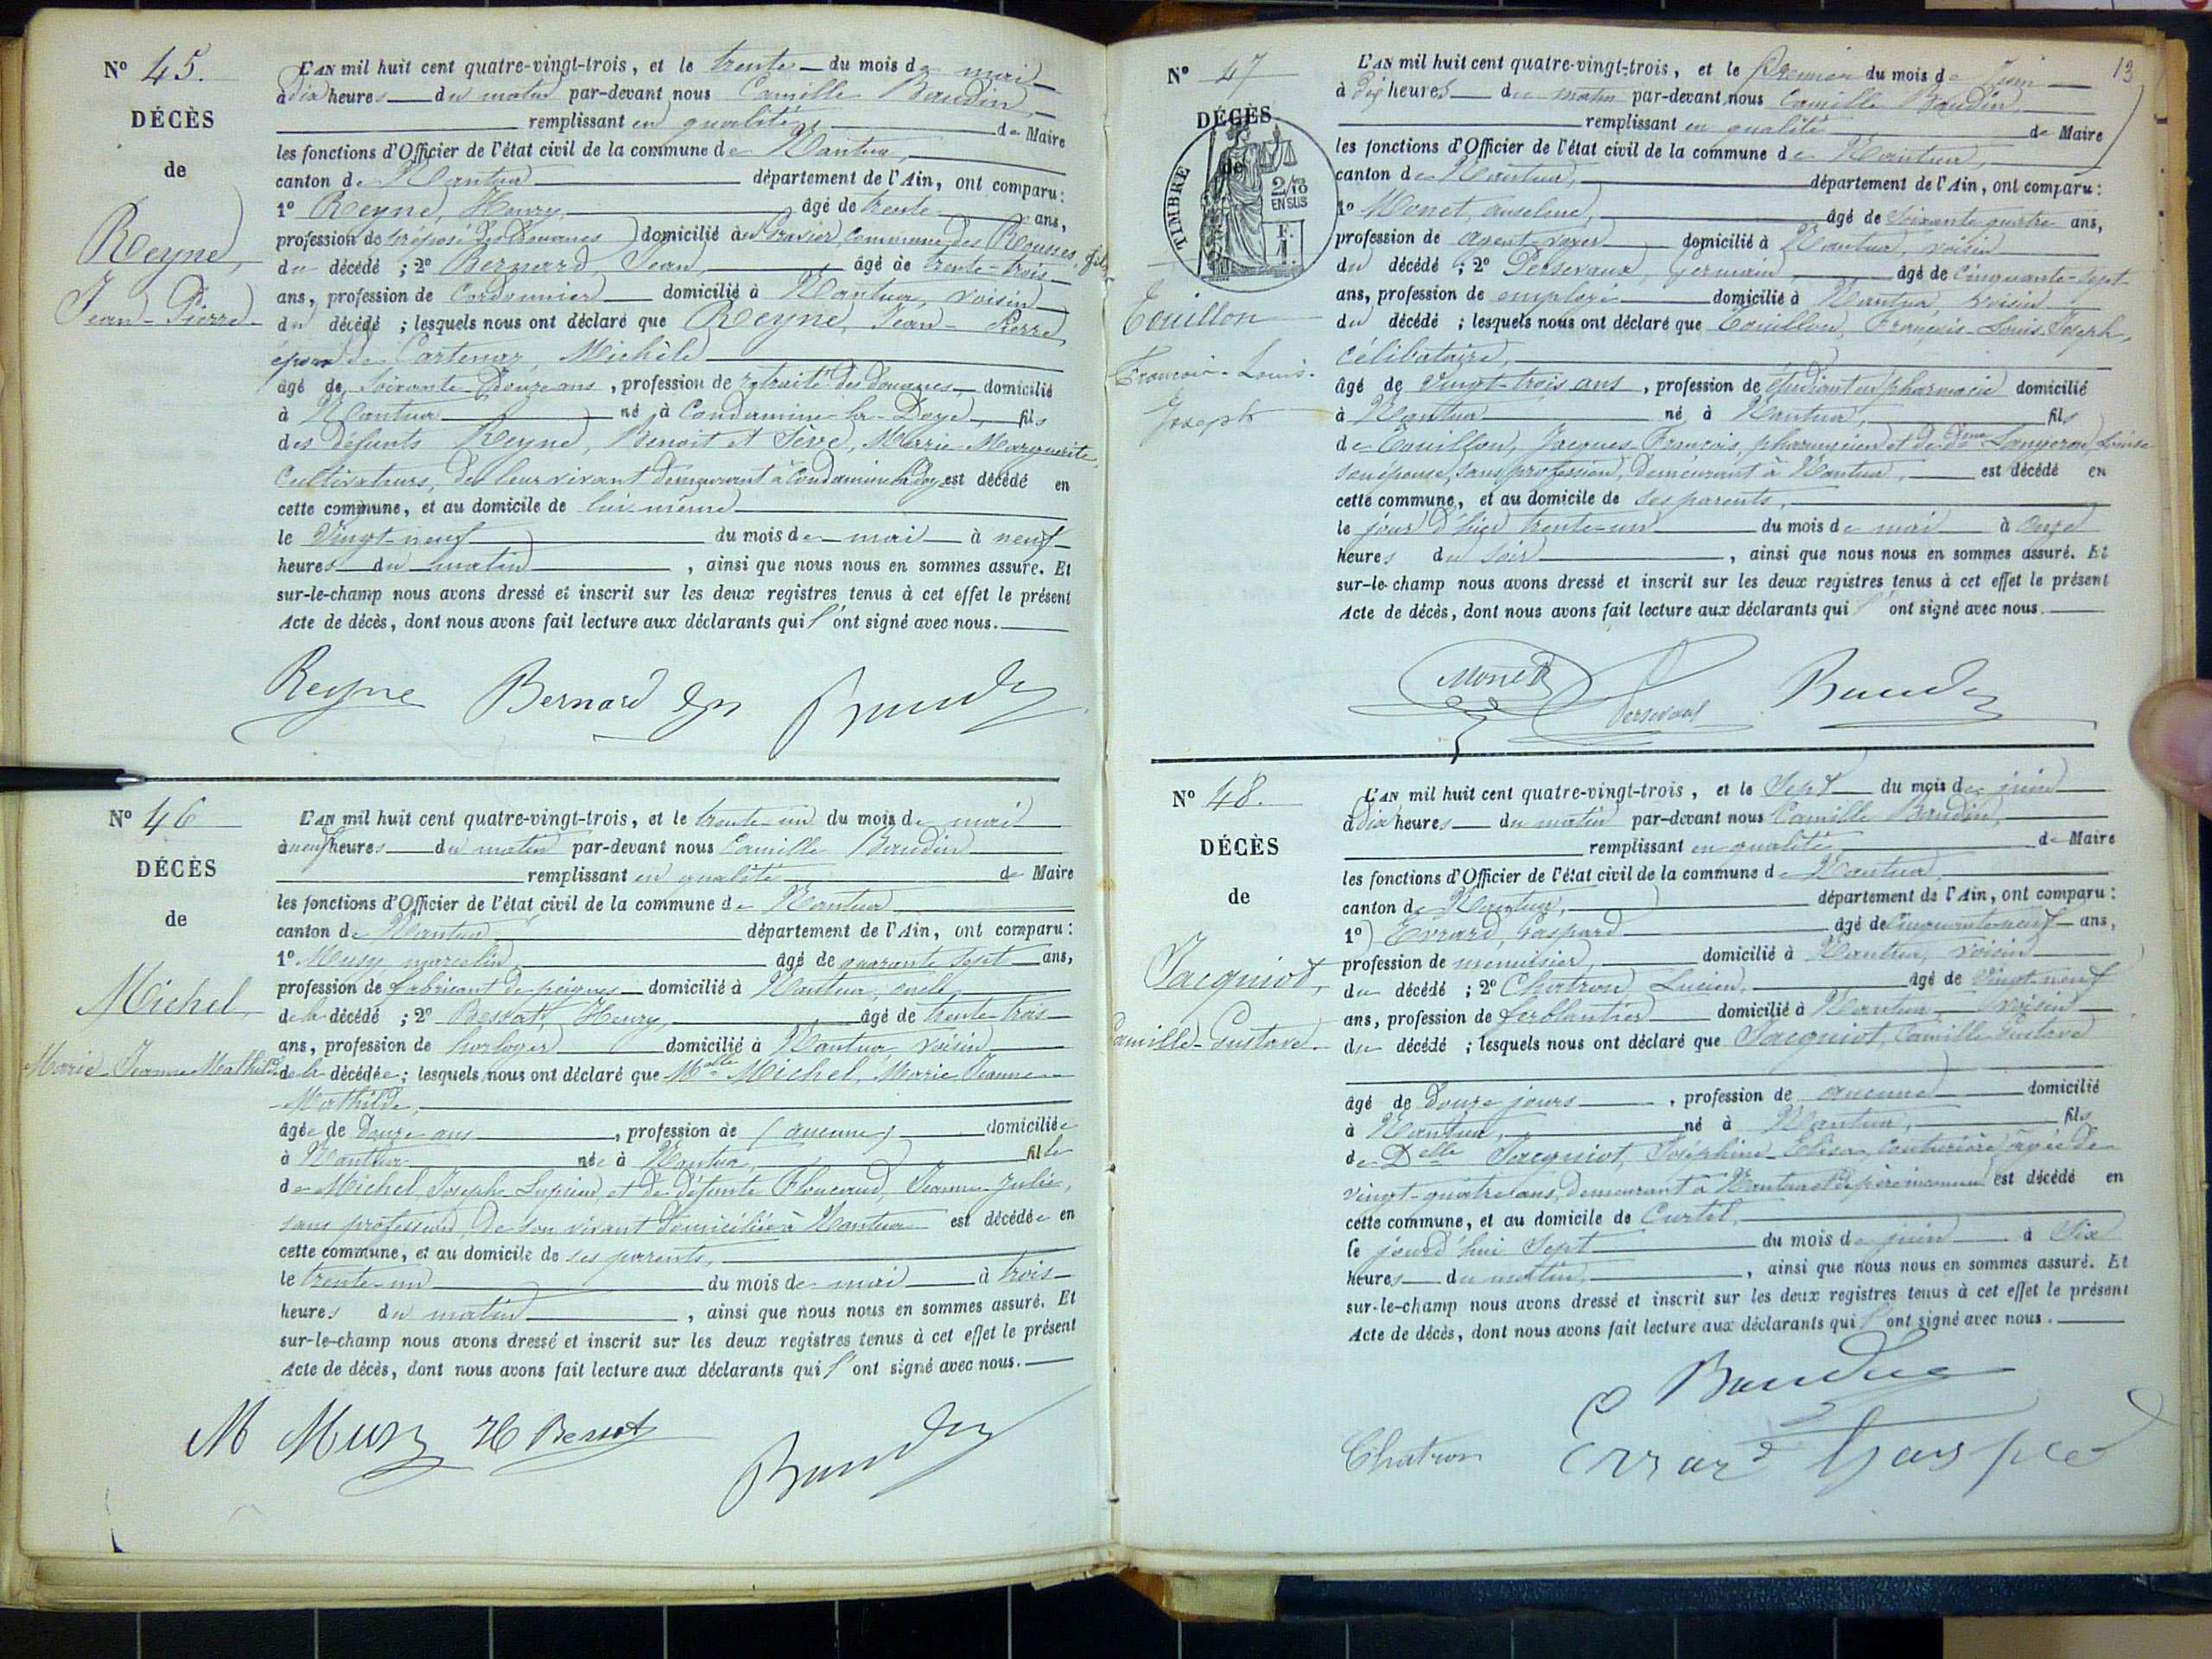 N° 45.
DÉCÈS
de
Reyne,
Jean-Pierre
L'AN mil huit cent quatre-vingt-trois, et le trente du mois de mai
à dix heures du matin par-devant nous Camille Baudin,
remplissant en qualité de Maire
les fonctions d'Officier de l'état civil de la commune de Nantua,
canton de Nantua département de l'Ain, ont comparu :
1° Reyne, Henry, âgé de trente ans,
profession de préposé des Douanes domicilié à commune des Rousses, fils
du décédé ; 2° Bernard, Jean, âgé de trente-trois
ans, profession de Cordonnier domicilié à Nantua, voisin
du décédé ; lesquels nous ont déclaré que Reyne, Jean-Pierre
époux de Michèle
âgé de Soixante-Douze ans, profession de retraité des douanes domicilié
à Nantua né à Condamine-la-Doye, fils
des défunts Reyne, Benoit et Sève, Marie-Marguerite,
Cultivateurs, de leur vivant demeurant à Condamine la Doye est décédé en
cette commune, et au domicile de lui-même
le Vingt-neuf du mois de mai à neuf
heures du matin, ainsi que nous nous en sommes assuré. Et
sur-le-champ nous avons dressé et inscrit sur les deux registres tenus à cet effet le présent
Acte de décès, dont nous avons fait lecture aux déclarants qui l'ont signé avec nous.
Reyne Bernard Baudin
N° 46
DÉCÈS
de
Michel,
Marie Jeanne Mathilde
L'AN mil huit cent quatre-vingt-trois, et le trente-un du mois de mai
à neuf heures du matin par-devant nous Camille Baudin
remplissant en qualité de Maire
les fonctions d'Officier de l'état civil de la commune de Nantua
canton de Nantua département de l'Ain, ont comparu :
1° Musy marcelin, âgé de quarante sept ans,
profession de fabricant de peignes domicilié à Nantua, oncle
de la décédé ; 2° Bessat, Henry, âgé de trente-trois
ans, profession de horloger domicilié à Nantua, voisin
de la décédée ; lesquels nous ont déclaré que Melle Michel, Marie Jeanne
Mathilde,
âgée de Douze ans, profession de (aucune) domiciliée
à Nantua née à Nantua, fille
de Michel, Joseph et de défunte Floucaud, Jeanne-Julie,
sans profession, de son vivant domiciliée à Nantua est décédée en
cette commune, et au domicile de ses parents,
le trente-un du mois de mai à trois
heures du matin, ainsi que nous nous en sommes assuré. Et
sur-le-champ nous avons dressé et inscrit sur les deux registres tenus à cet effet le présent
Acte de décès, dont nous avons fait lecture aux déclarants qui l'ont signé avec nous.
M Musy H Bessat
Baudin
13
N° 47
DÉCÈS
de
TIMBRE
2/10
EN SUS
F.
1.
Touillon
François-Louis-
Joseph
L'AN mil huit cent quatre-vingt-trois, et le Premier du mois de Juin
à Dix heures du matin par-devant nous Camille Baudin,
remplissant en qualité de Maire
les fonctions d'Officier de l'état civil de la commune de Nantua,
canton de Nantua, département de l'Ain, ont comparu :
1° Monet, anselme, âgé de Soixante quatre ans,
profession de agent-voyer domicilié à Nantua, voisin
du décédé ; 2° Persevaux, Germain, âgé de Cinquante-sept
ans, profession de employé domicilié à Nantua, voisin
du décédé ; lesquels nous ont déclaré que Touillon, François-Louis-Joseph,
célibataire,
âgé de Vingt-trois ans, profession de étudiant en pharmacie domicilié
à Nantua né à Nantua, fils
de Touillon, Jacques François, pharmacien et de dme Langeron, Louise
son épouse, sans profession, demeurant à Nantua, est décédé en
cette commune, et au domicile de ses parents,
le jour d'hier trente-un du mois de mai à onze
heures du soir, ainsi que nous nous en sommes assuré. Et
sur-le-champ nous avons dressé et inscrit sur les deux registres tenus à cet effet le présent
Acte de décès, dont nous avons fait lecture aux déclarants qui l'ont signé avec nous.
Monet Baudin
N° 48.
DÉCÈS
de
Jacquiot,
Camille-Gustave
L'AN mil huit cent quatre-vingt-trois, et le Sept du mois de juin
à dix heures du matin par-devant nous Camille Baudin,
remplissant en qualité de Maire
les fonctions d'Officier de l'état civil de la commune de Nantua,
canton de Nantua, département de l'Ain, ont comparu :
1° Evrard, Gaspard âgé de Cinquante-neuf ans,
profession de menuisier domicilié à Nantua, voisin
du décédé ; 2° Chatron, Lucien, âgé de vingt-neuf
ans, profession de ferblantier domicilié à Nantua, voisin
du décédé ; lesquels nous ont déclaré que Jacquiot, Camille Gustave
âgé de Douze jours, profession de aucune domicilié
à Nantua, né à Nantua, fils
de Delle Jacquiot, Joséphine-Elisa, Couturière, âgée de
vingt-quatre ans, demeurant à Nantua et de père inconnu est décédé en
cette commune, et au domicile de Curtil,
le jourd'hui Sept du mois de juin à Six
heures du matin, ainsi que nous nous en sommes assuré. Et
sur-le-champ nous avons dressé et inscrit sur les deux registres tenus à cet effet le présent
Acte de décès, dont nous avons fait lecture aux déclarants qui l'ont signé avec nous.
C Baudin
Chatron Evrard Gaspard